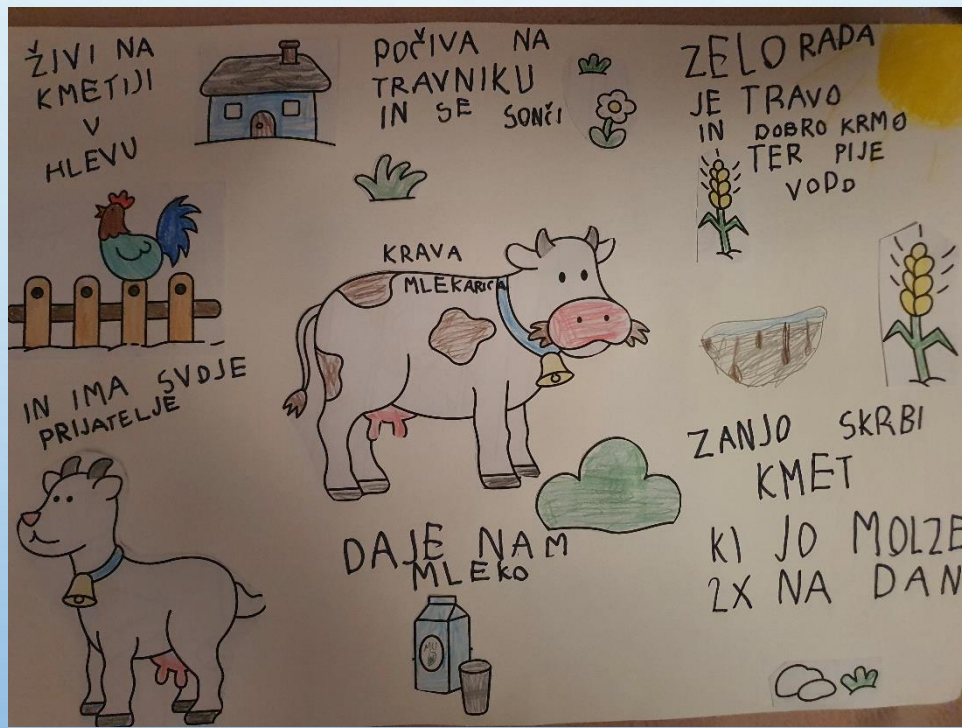 ŽIVI NA
KMETIJI
V
HLEVU
POČIVA NA
TRAVNIKU
IN SE SONČI
ZELO RADA
JE TRAVO
IN DOBRO KRMO
TER PIJE
VODO
KRAVA
MLEKARICA
IN IMA SVOJE
PRIJATELJE
ZANJO SKRBI
KMET
KI JO MOLZE
2X NA DAN
DAJE NAM
MLEKO